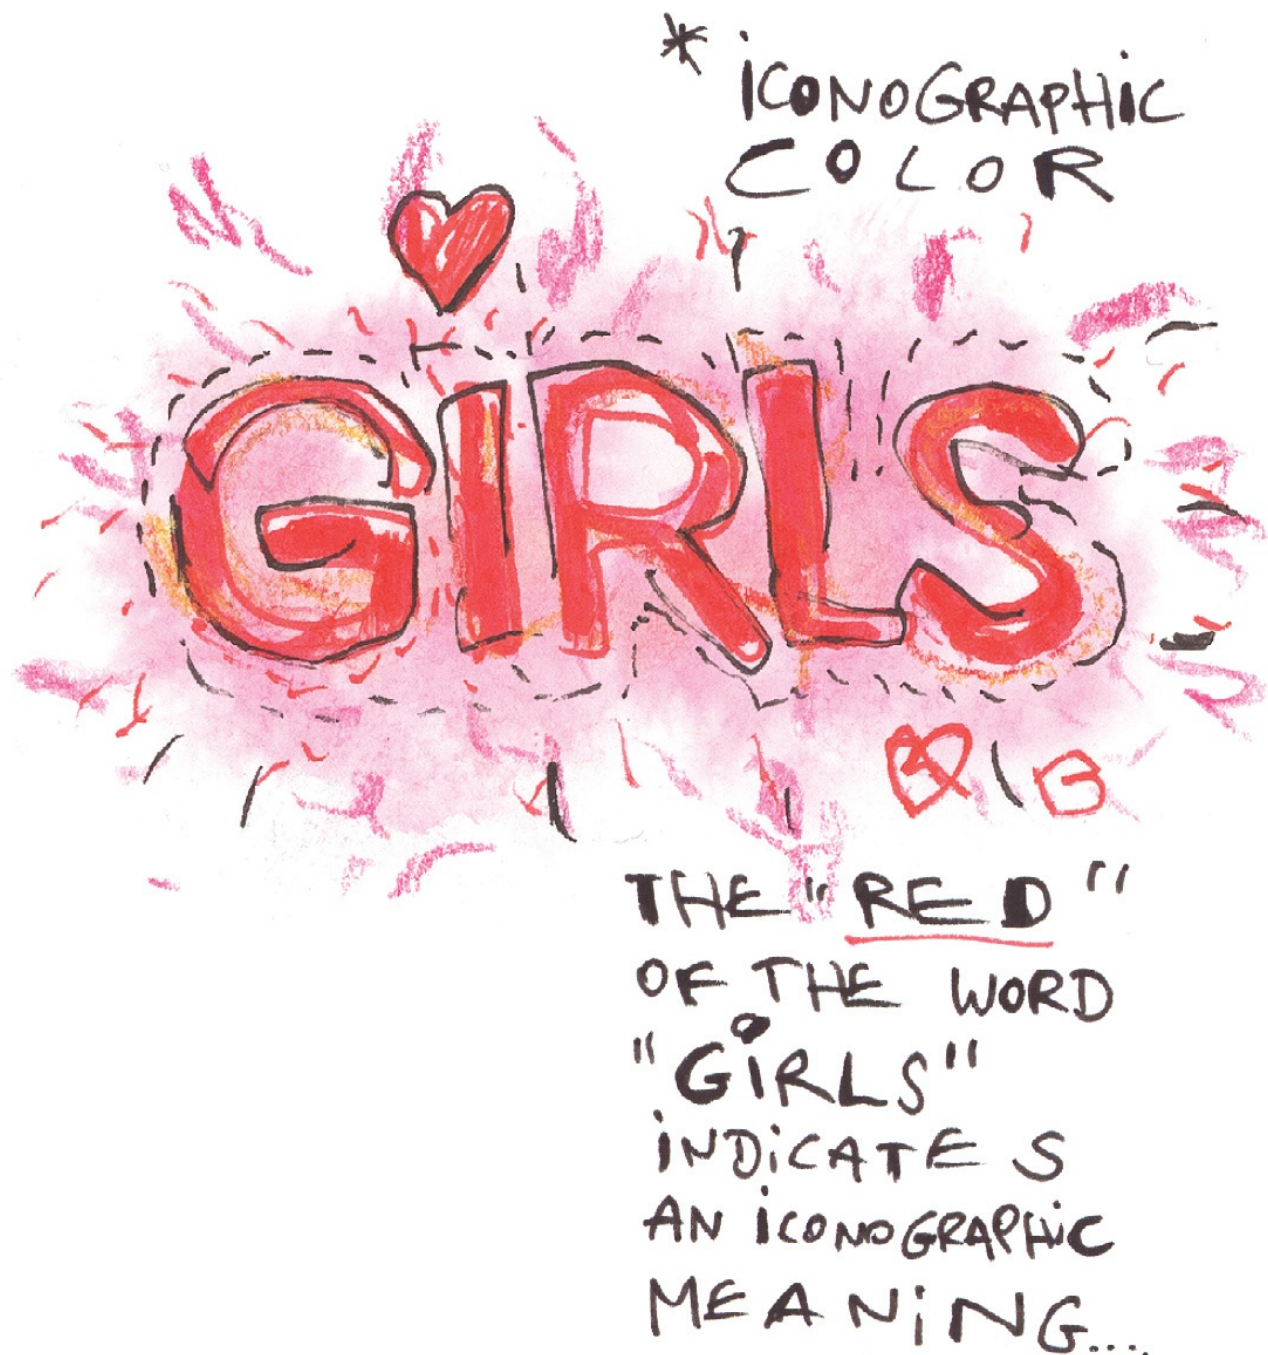 * ICONOGRAPHIC
COLOR
GIRLS
THE "RED"
OF THE WORD
"GIRLS"
INDICATES
AN ICONOGRAPHIC
MEANING....